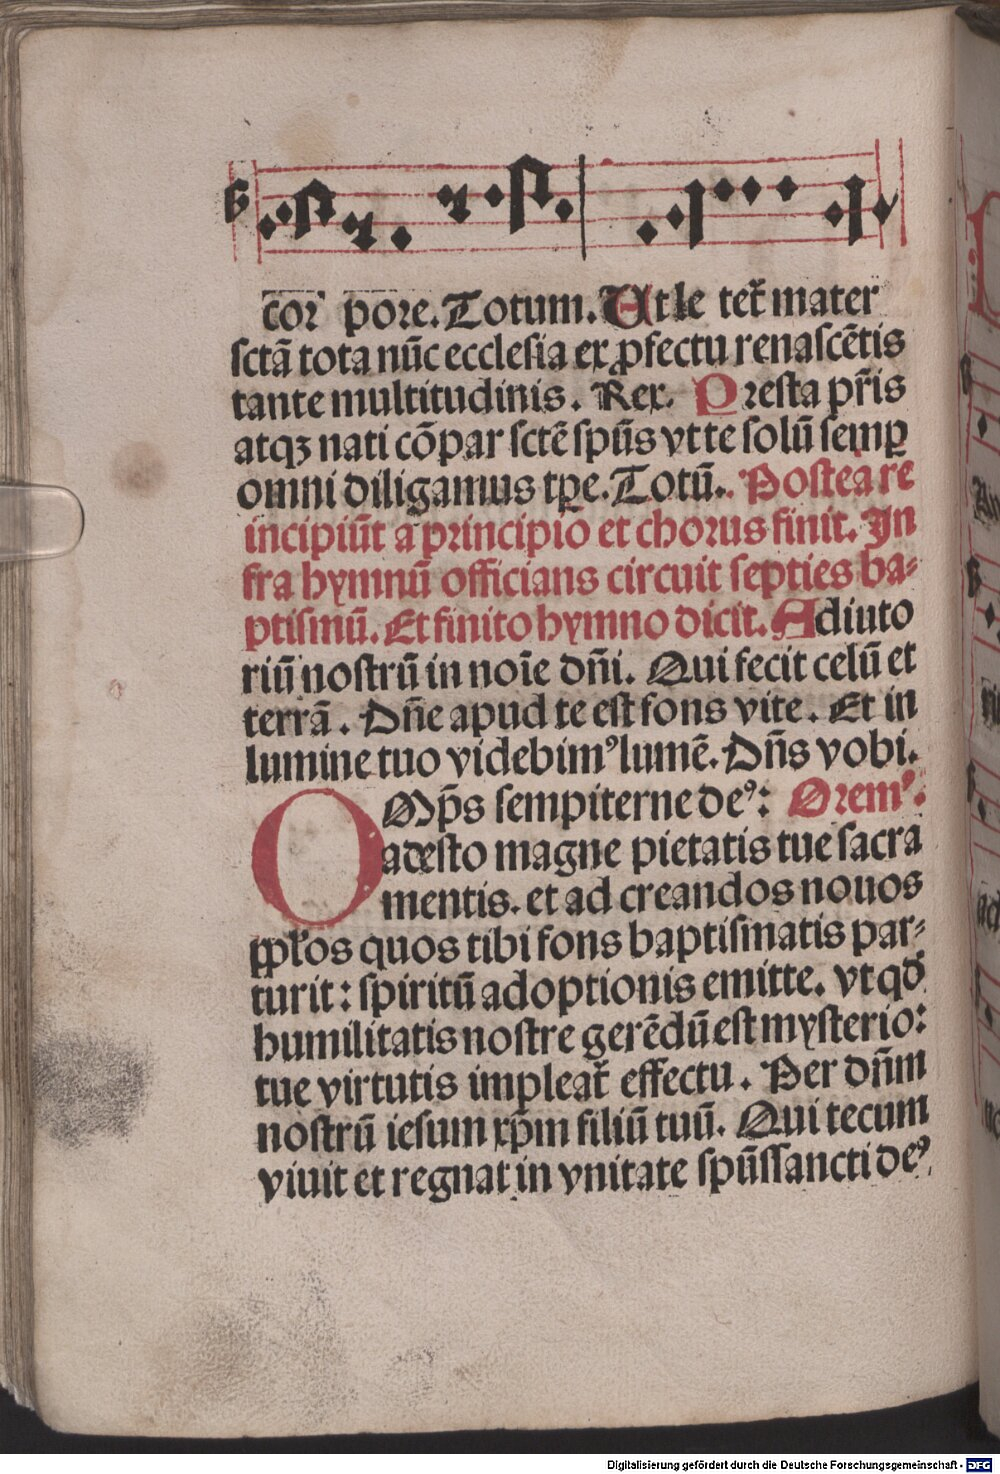 cor̄ pore. Totum. Ut le tet᷑ mater
sctā tota nūc ecclesia ex ꝓfectu renascētis
tante multitudinis. Rex. Presta pr̄is
atqꝫ nati cōpar sctē spūs vt te solū semꝑ
omni diligamus tꝑe. Totū. Postea re
incipiūt a principio et chorus finit. In
fra hymnū officians circuit septies ba⸗
ptismū. Et finito hymno dicit. Adiuto
riū nostrū in noīe dn̄i. Qui fecit celū et
terrā. Dn̄e apud te est fons vite. Et in
lumine tuo videbimꝰ lumē. Dn̄s vobi.
OMp̄s sempiterne deꝰ: Oremꝰ.
adesto magne pietatis tue sacra
mentis. et ad creandos nouos
pp̄los quos tibi fons baptismatis par⸗
turit: spiritū adoptionis emitte. vt qd̄
humilitatis nostre gerēdū est mysterio:
tue virtutis impleat᷑ effectu. Per dn̄m
nostrū iesum xp̄m filiū tuū. Qui tecum
viuit et regnat in vnitate spūssancti deꝰ.
Digitalisierung gefördert durch die Deutsche Forschungsgemeinschaft - DFG